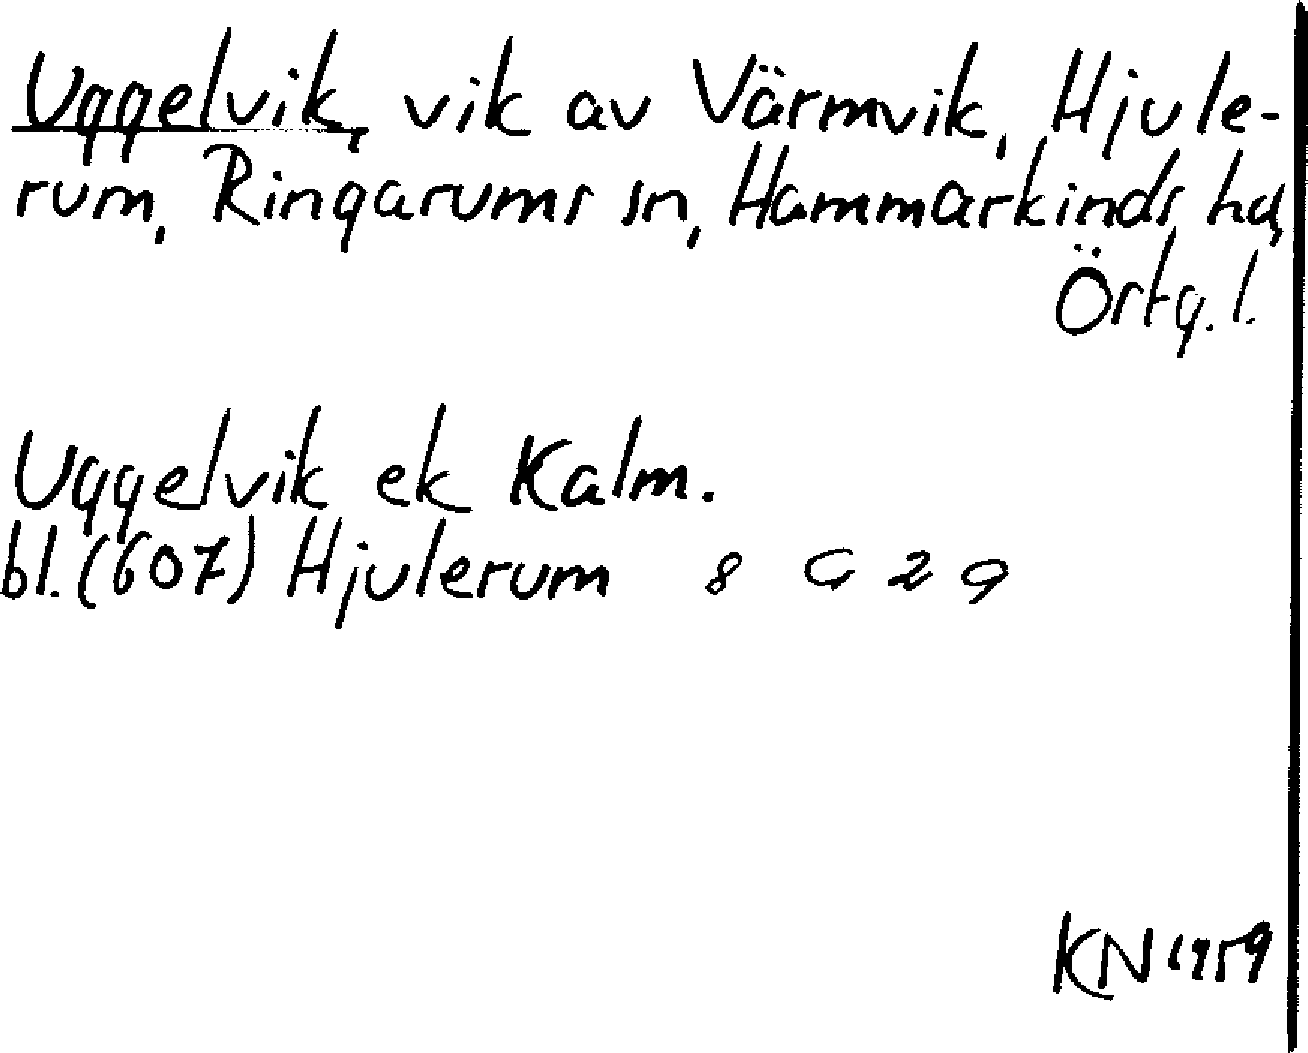 Uggelvik, vik av Värmvik, Hjule-
rum, Ringarums sn, Hammarkinds hd,
Östg. l.
Uggelvik ek Kalm.
bl. (607) Hjulerum 8 G 2 a
KN 1959